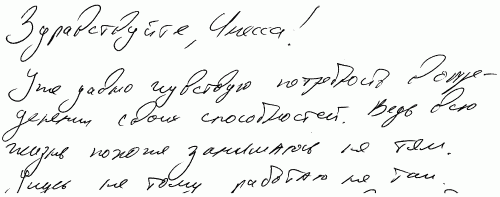 Здравствуйте, Инесса!
Уже давно чувствую потребность в опре-
делении своих способностей. Ведь всю
жизнь похоже занимаюсь не тем.
Учусь не тому, работаю не там.